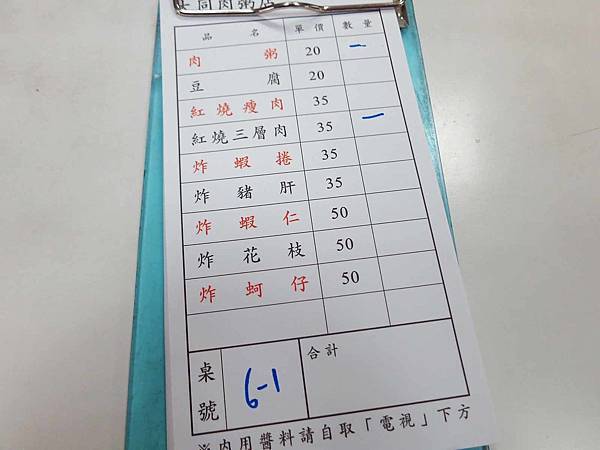 同肉粥店
品名 單價 數量
肉粥 20 一
豆腐 20
紅燒瘦肉 35
紅燒三層肉 35 一
炸蝦捲 35
炸豬肝 35
炸蝦仁 50
炸花枝 50
炸蚵仔 50
桌號 6-1 合計
※內用醬料請自取「電視」下方